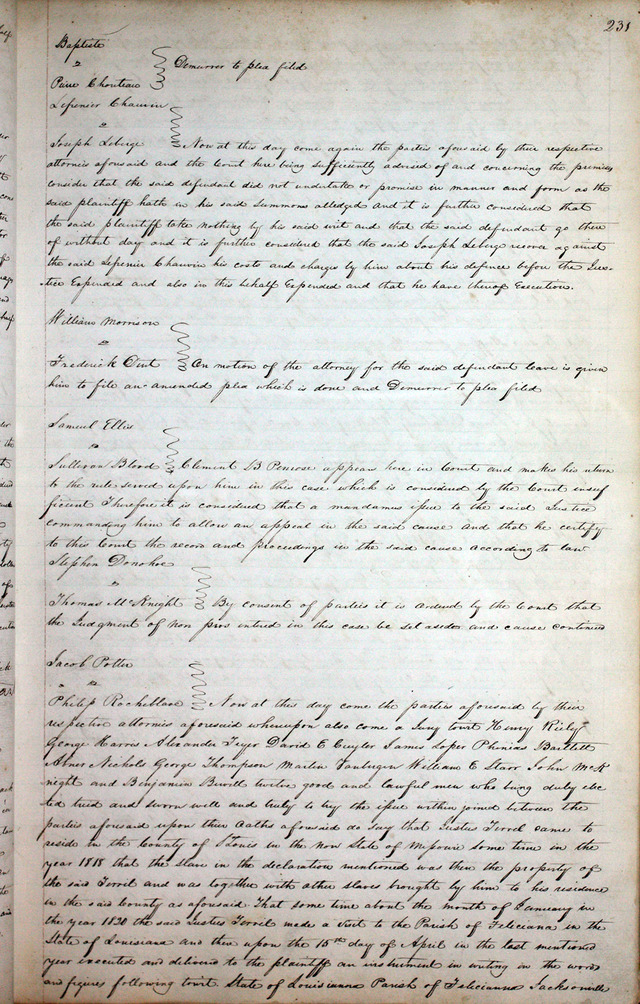 231
Baptiste
vs
Demurrer to plea filed
Pierre Chouteau
Lefrenier Chauvin
vs
Joseph Leberge Now at this day come again the parties aforesaid by their respective
attornies aforesaid and the Court here being sufficiently advised of and concerning the premises
consider that the said defendant did not undertake or promise in manner and form as the
said plaintiff hath in his said Summons alledged and it is further considered that
the said plaintiff take nothing by his said writ and that the said defendant go there
of without day and it is further considered that the said Joseph Leberge recover against
the said Lefrenier Chauvin his costs and charges by him about his defence before the Jus=
=tice Expended and also in this behalf Expended and that he have thereof Execution.
William Morrison
vs
Frederick Dent On motion of the attorney for the said defendant leave is given
him to file an amended plea which is done and Demurrer to plea filed
Samuel Ellis
vs
Sullivan Blood Clement B Penrose appears here in Court and makes his return
to the rule served upon him in this case which is considered by the Court insuf
ficient Therefore it is considered that a mandamus issue to the said Justice
commanding him to allow an appeal in the said cause and that he certify
to this Court the record and proceedings in the said cause according to law
Stephen Donohoe
vs
Thomas McKnight By consent of parties it is ordered by the Court that
the Judgment of non pros entered in this case be set aside and cause continued
Jacob Potter
vs
Philip Rocheblave Now at this day come the parties aforesaid by their
respective attornies aforesaid whereupon also come a Jury towit Henry
George Harris Alexander David E Cuyler James Loper Phinias Bartlett
Abner Nichols George Thompson Martin Vanburgen William E Starr John McK
night and Benjamin twelve good and lawful men who being duly elec
ted tried and sworn well and truly to try the issue within joined between the
parties aforesaid upon their Oaths aforesaid do say that Justus Terril came to
reside in the County of St Louis in the now State of Missouri some time in the
year 1818 that the slave in the declaration mentioned was then the property of
the said Terril and was together with other slaves brought by him to his residence
in the said County as aforesaid That some time about the month of January in
the year 1820 the said Justus Terril made a visit to the Parish of Feliciana in the
State of Louisiana and then upon the 15th day of April in the last mentioned
year executed and delivered to the plaintiff an instrument in writing in the words
and figures following towit State of Louisianna Parish of Felicianna Jacksonville